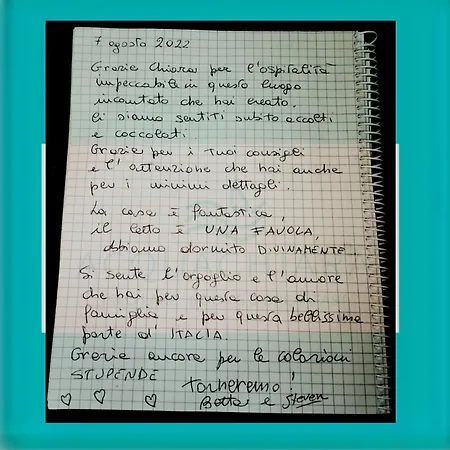 7 agosto 2022
Grazie Chiara per l'ospitalità
impeccabile in questo luogo
incantato che hai creato.
Ci siamo sentiti subito accolti
e coccolati
Grazie per i tuoi consigli
e l'attenzione che hai anche
per i minimi dettagli.
La casa è fantastica,
il letto è UNA FAVOLA,
abbiamo dormito DIVINAMENTE
Si sente l'orgoglio e l'amore
che hai per questa casa di
famiglia e per questa bellissima
parte d'ITALIA.
Grazie ancora per le colazioni
STUPENDE
torneremo!
Betta e Steven